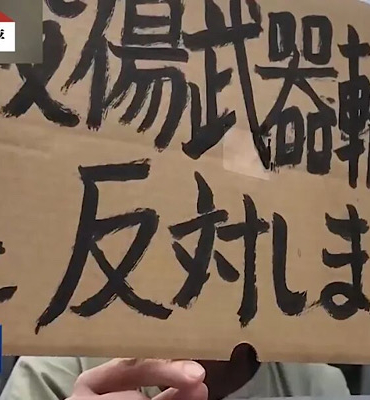 殺傷武器輸
反対しま